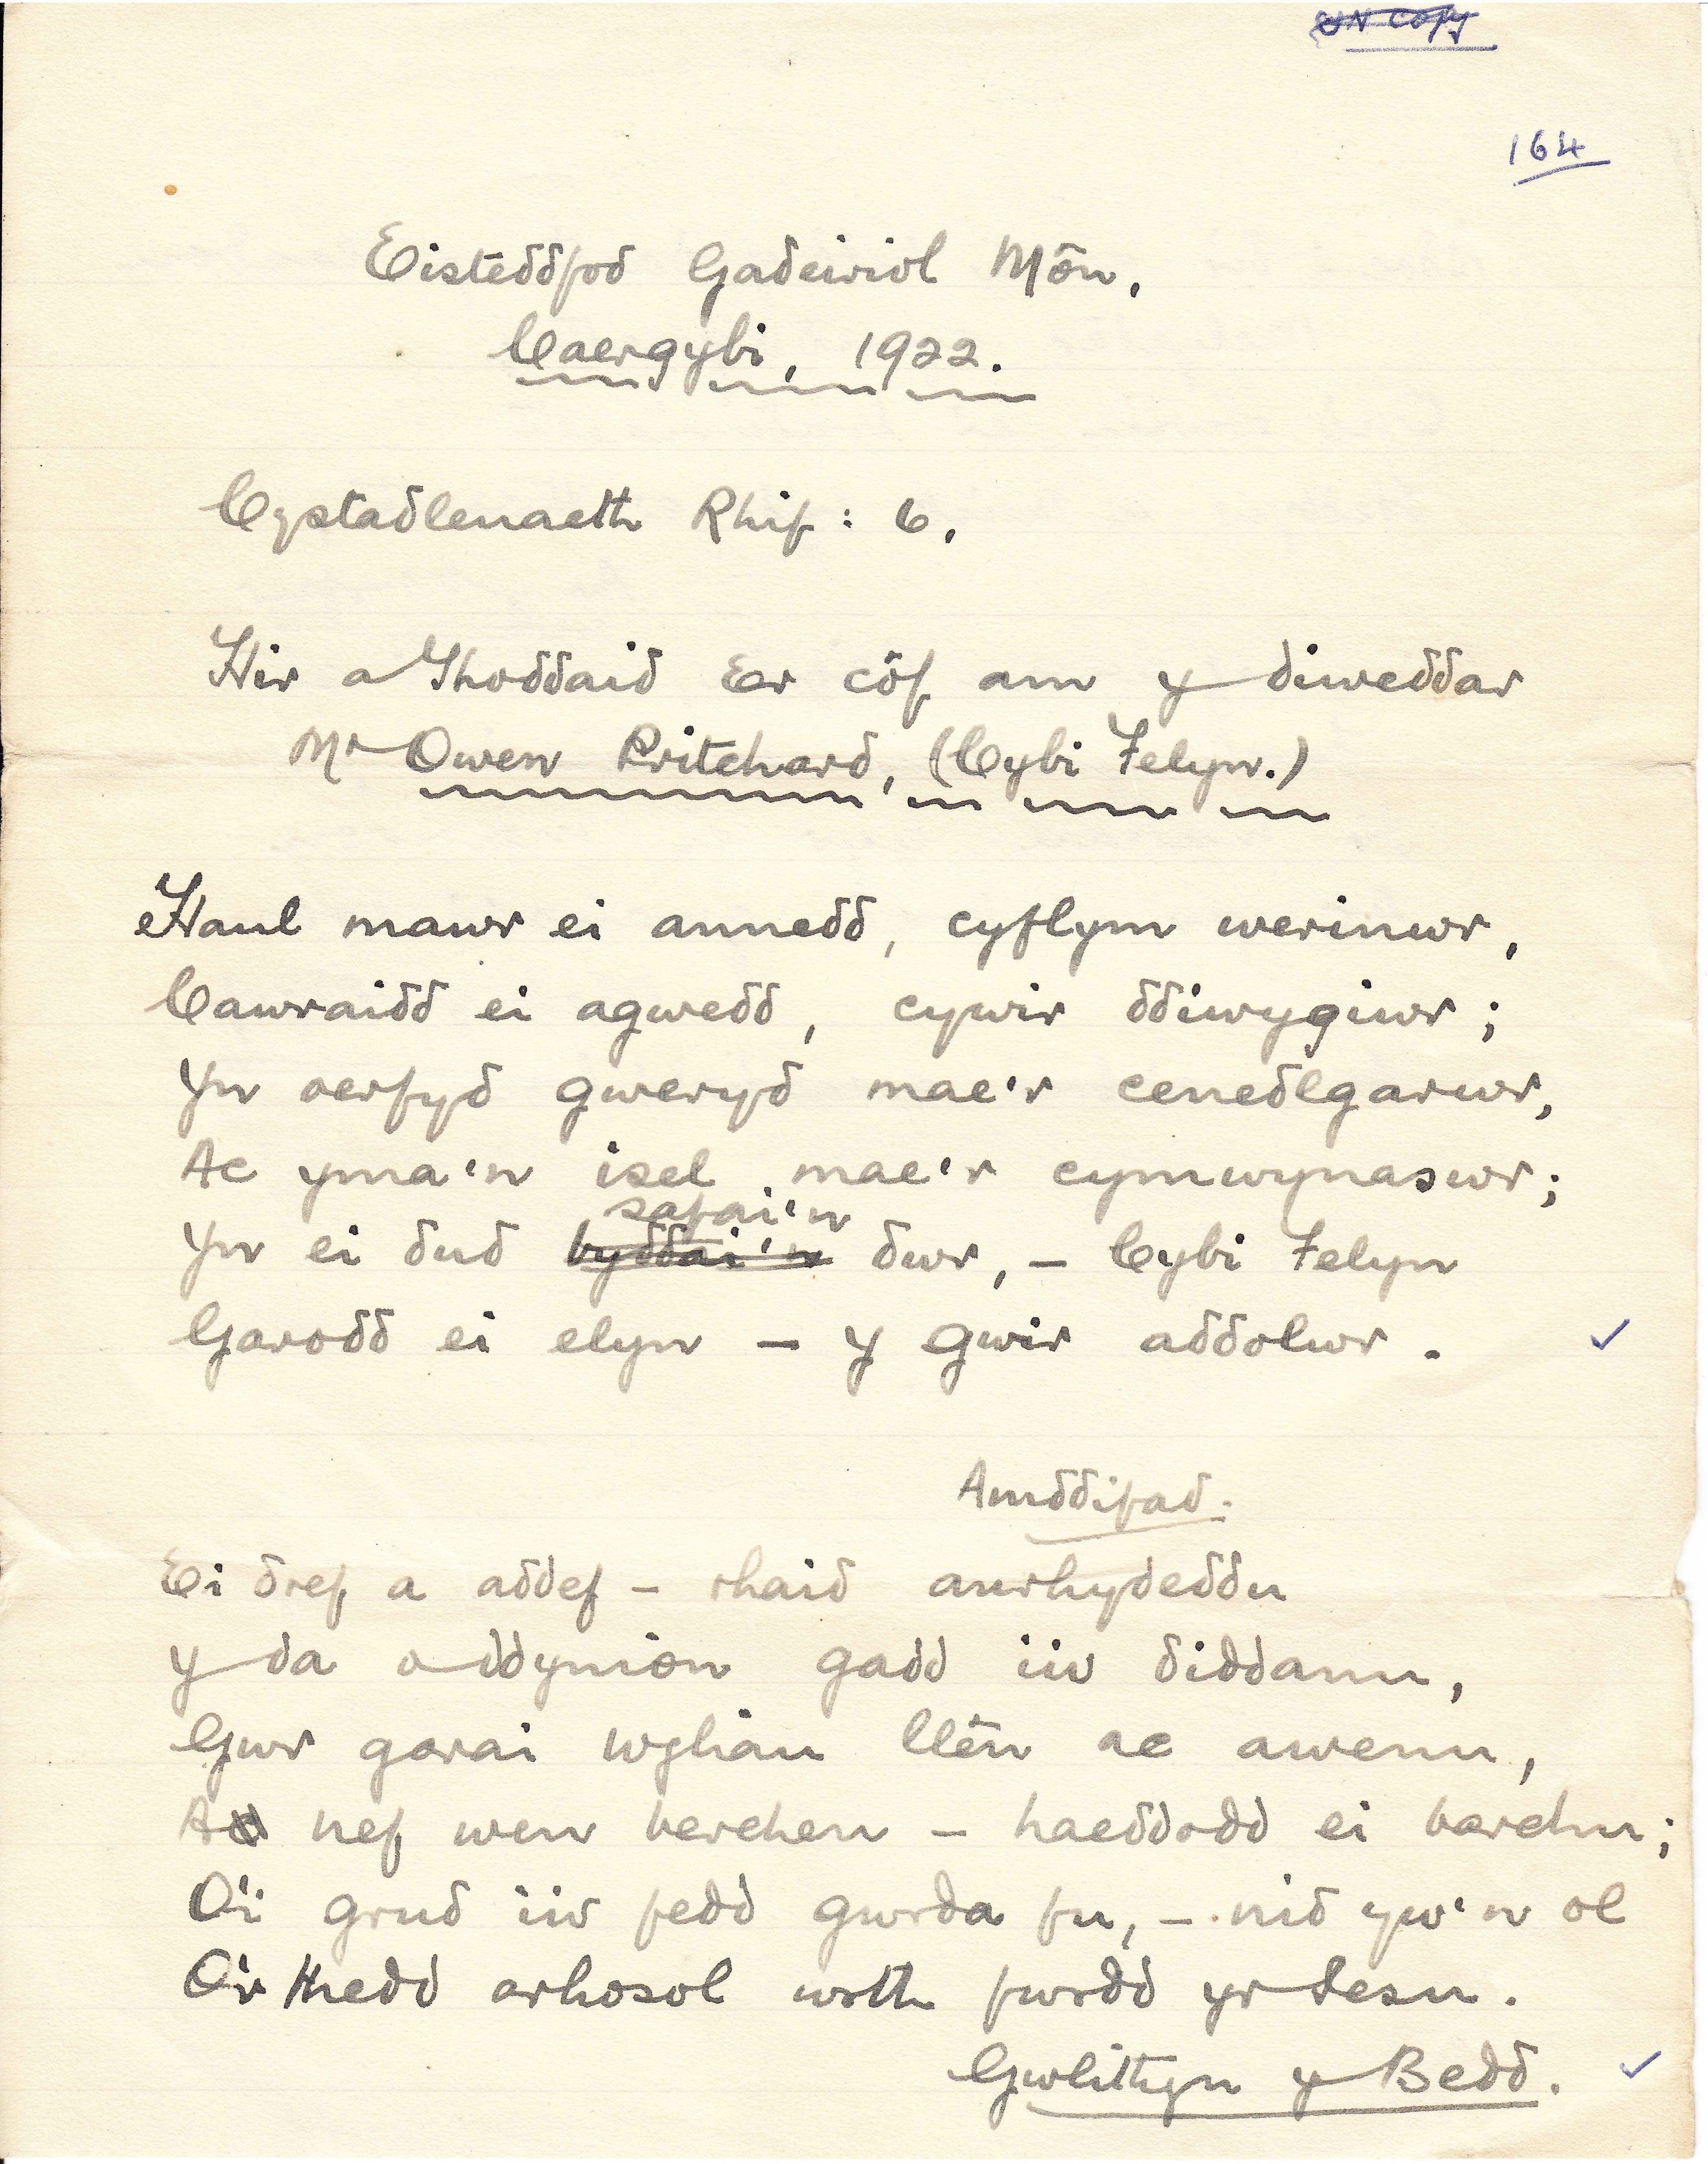 164
Eisteddfod Gadeiriol Môn,
Caergybi, 1922.
Cystadlenaeth Rhif: 6,
Hir a Thoddaid Er côf am y diweddar
Mr Owen Pritchard, (Cybi Felyn.)
Haul mawr ei annedd, cyflym werinwr,
Cawraidd ei agwedd, cywir ddiwygiwr;
Yn oerfyd gweryd mae'r cenedlgarwr,
Ac yma'n isel mae'r cymwynaswr;
safai'n
Yn ei dud byddai'n dwr, – Cybi Felyn
Garodd ei elyn – y gwir addolwr.
Amddifad.
Ei dref a addef – rhaid anrhydeddu
Y da o ddynion gadd iw diddanu,
Gwr garai wyliau llên ac awenu,
nef wen berchen – haeddodd ei barchu;
O'i grud iw fedd gwrda fu, – nid yw'n ol
O'r Hedd arhosol wrth fwrdd yr Iesu.
Gwlithyn y Bedd.